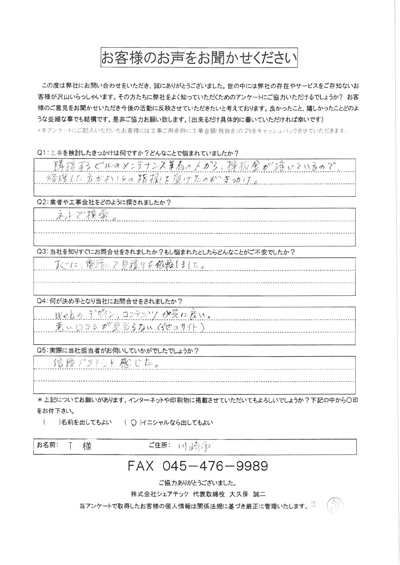 お客様のお声をお聞かせください
この度は弊社にお問い合わせをいただき、誠にありがとうございました。世の中には弊社の存在やサービスをご存知ないお
客様が沢山いらっしゃいます。その方たちに弊社をよく知っていただくためのアンケートにご協力いただけるでしょうか？ お客
様のご意見をお聞かせいただき今後の活動に反映させていただきたいと考えております。良かったこと、嬉しかったことどのよ
うな些細な事でも結構です。是非ご協力お願い致します。（出来るだけ具体的に書いていただければ幸いです）
*本アンケートにご記入いただいたお客様には工事ご発注時に工事金額(税抜き)の2%をキャッシュバックさせていただきます。
Q1:工事を検討したきっかけは何ですか？どんなことで悩まれていましたか？
隣接するビルのメンテナンス業者の人から、棟板金が浮いているので、
修理した方がよいとの指摘を受けたのがきっかけ。
Q2:業者や工事会社をどのように探されましたか？
ネットで検索。
Q3:当社を知りすぐにお問合せをされましたか？もし悩まれたとしたらどんなことがご不安でしたか？
すぐに、電話にて見積りを依頼しました。
Q4:何が決め手となり当社にお問合せをされましたか？
Webのデザイン、コンテンツが共に良い。
悪い口コミが見当らない（他のサイト）
Q5:実際に当社担当者がお伺いしていかがでしたでしょうか？
信頼できそうと感じた。
*上記についてお願いがあります。インターネットや印刷物に掲載させていただいてもよろしいでしょうか？下記の中から〇印
をお付下さい。
（ ）名前を出してもよい （〇）イニシャルなら出してもよい
お名前: T 様 ご住所: 川崎市
FAX 045-476-9989
ご協力ありがとうございました。
株式会社シェアテック 代表取締役 大久保 誠二
当アンケートで取得したお客様の個人情報は関係法規に基づき厳正に管理いたします。